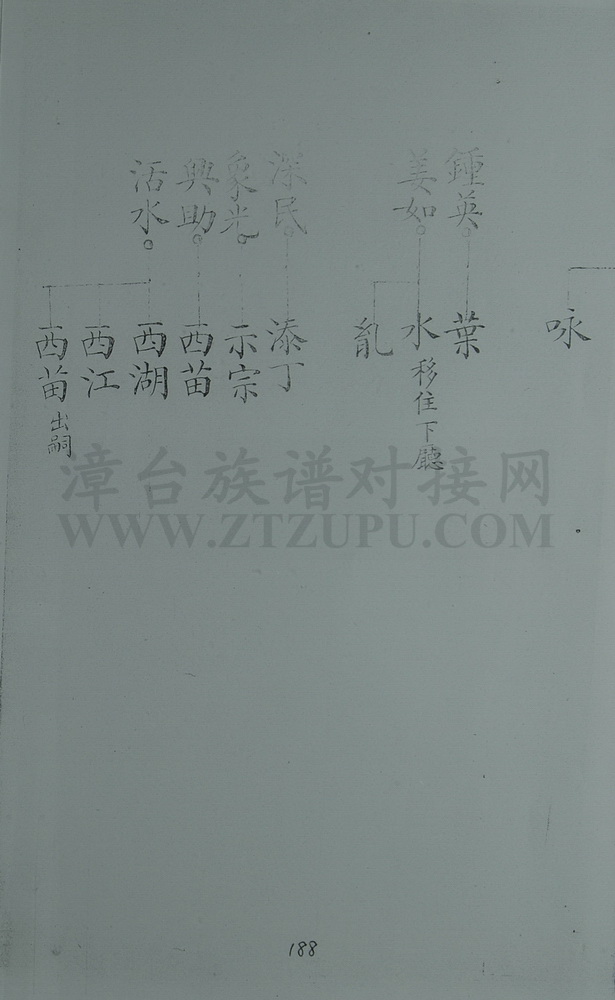 鍾英
姜如
深民
象光
興助
活水
咏
葉
水移住下廳
亂
添丁
示宗
西苗
西湖
西江
西苗出嗣
漳台族谱对接网
WWW.ZTZUPU.COM
188